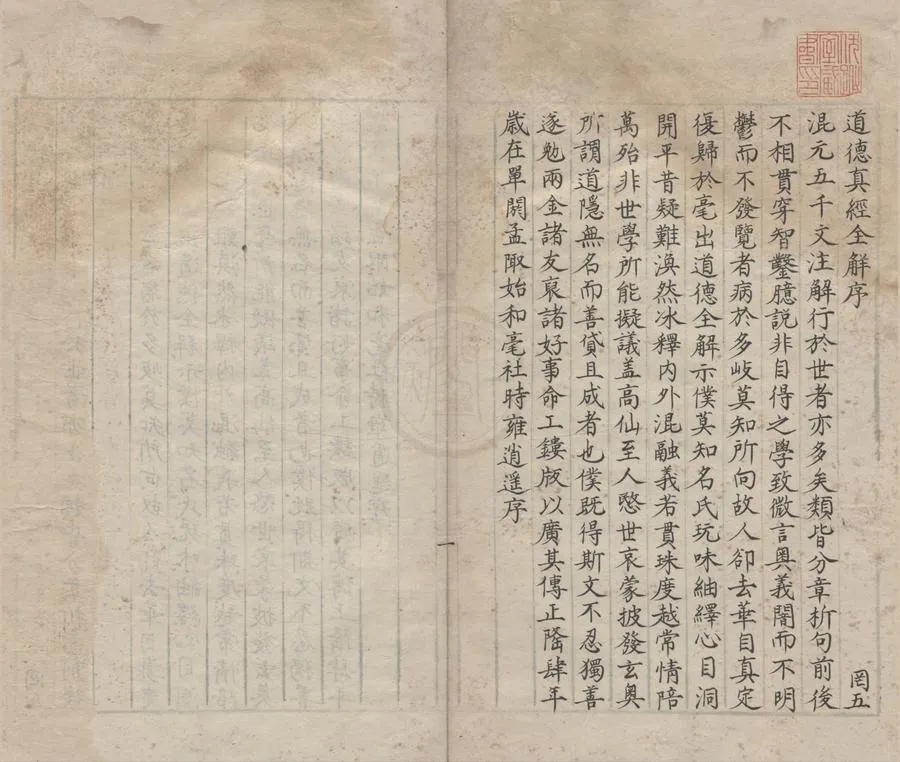 道德真經全解序
罔五
混元五千文注解行於世者亦多矣類皆分章析句前後
不相貫穿智鑿臆說非自得之學致微言奧義闇而不明
鬱而不發覽者病於多岐莫知所向故人卻去華自真定
復歸於毫出道德全解示僕莫知名氏玩味紬繹心目洞
開平昔疑難渙然冰釋內外混融義若貫珠度越常情陪
萬殆非世學所能擬議盖高仙至人愍世哀蒙披發玄奥
所謂道隱無名而善貸且成者也僕既得斯文不忍獨善
遂勉兩金諸友裒諸好事命工鏤版以廣其傳正隆肆年
歲在單閼孟陬始和毫社時雍逍遥序
一